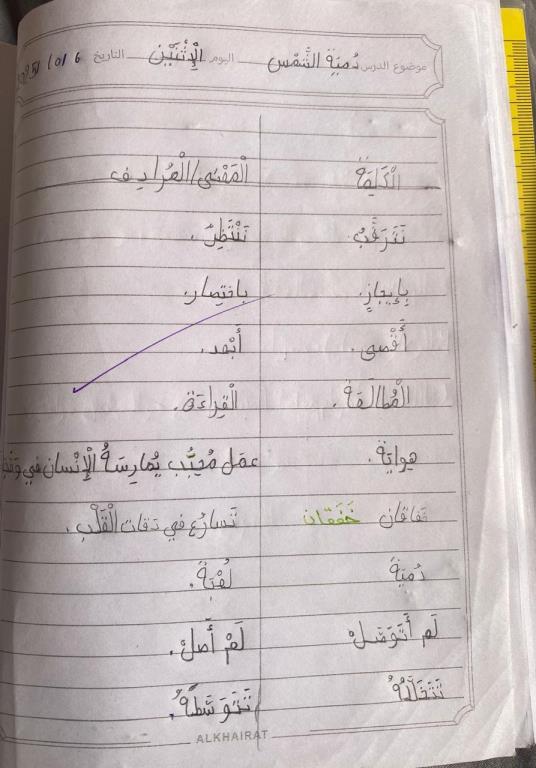 موضوع الدرس دُمْيَة الشَّمْس اليوم الْإِثْنَيْن التاريخ 6 /10/
الْكَلِمَة الْمَعْنَى/الْمُرَادِف
تَتَرَقَّبُ تَنْتَظِرُ.
بِإِيجَازٍ. بِاخْتِصَار.
أَقْصَى. أَبْعَد.
الْمُطَالَعَة. الْقِرَاءَة.
هِوَايَة. عَمَل مُحَبَّب يُمَارِسَهُ الْإِنْسَان فِي
خَفَقَان تَسَارُع فِي دَقَات الْقَلْب.
دُمْيَة لُعْبَة.
لَم أَتَوَصَل لَمْ أَصِلْ.
تَتَخَلَّلُهُ تَتَوَسَّطُهُ.
ALKHAIRAT